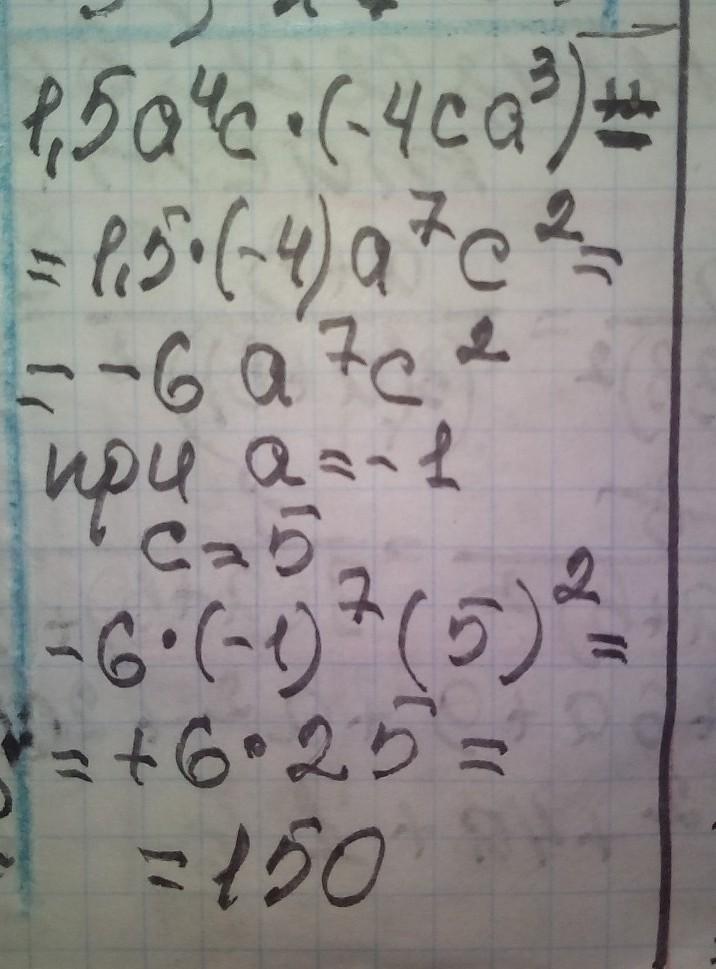 1,5a⁴c · (-4ca³) =
= 1,5 · (-4) a⁷ c² =
= -6 a⁷c²
при a = -1
c = 5
-6 · (-1)⁷ (5)² =
= +6 · 25 =
= 150